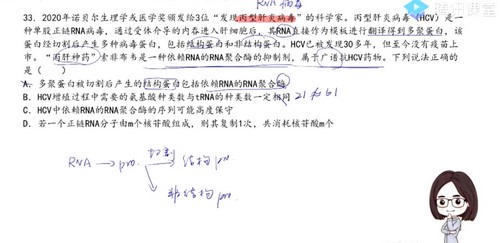 RNA病毒
腾讯课堂
33. 2020年诺贝尔生理学或医学奖颁发给3位“发现丙型肝炎病毒”的科学家。丙型肝炎病毒（HCV）是一
种单股正链RNA病毒，通过受体介导的内吞进入肝细胞后，其RNA直接作为模板进行翻译得到多聚蛋白，该
蛋白经切割后产生多种病毒蛋白，包括结构蛋白和非结构蛋白。HCV已被发现30多年，但至今没有疫苗上
市。“丙肝神药”索非布韦是一种依赖RNA的RNA聚合酶的抑制剂，属于广谱抗HCV药物。下列说法正确的
是（ ）
A. 多聚蛋白被切割后产生的结构蛋白包括依赖RNA的RNA聚合酶
B. HCV增殖过程中需要的氨基酸种类数与tRNA的种类数一定相同 21 ≠ 61
C. HCV中依赖RNA的RNA聚合酶的序列可能高度保守
D. 若一个正链RNA分子由m个核苷酸组成，则其复制1次，共消耗核苷酸m个
切割
RNA → pro. 结构 pro.
非结构 pro.